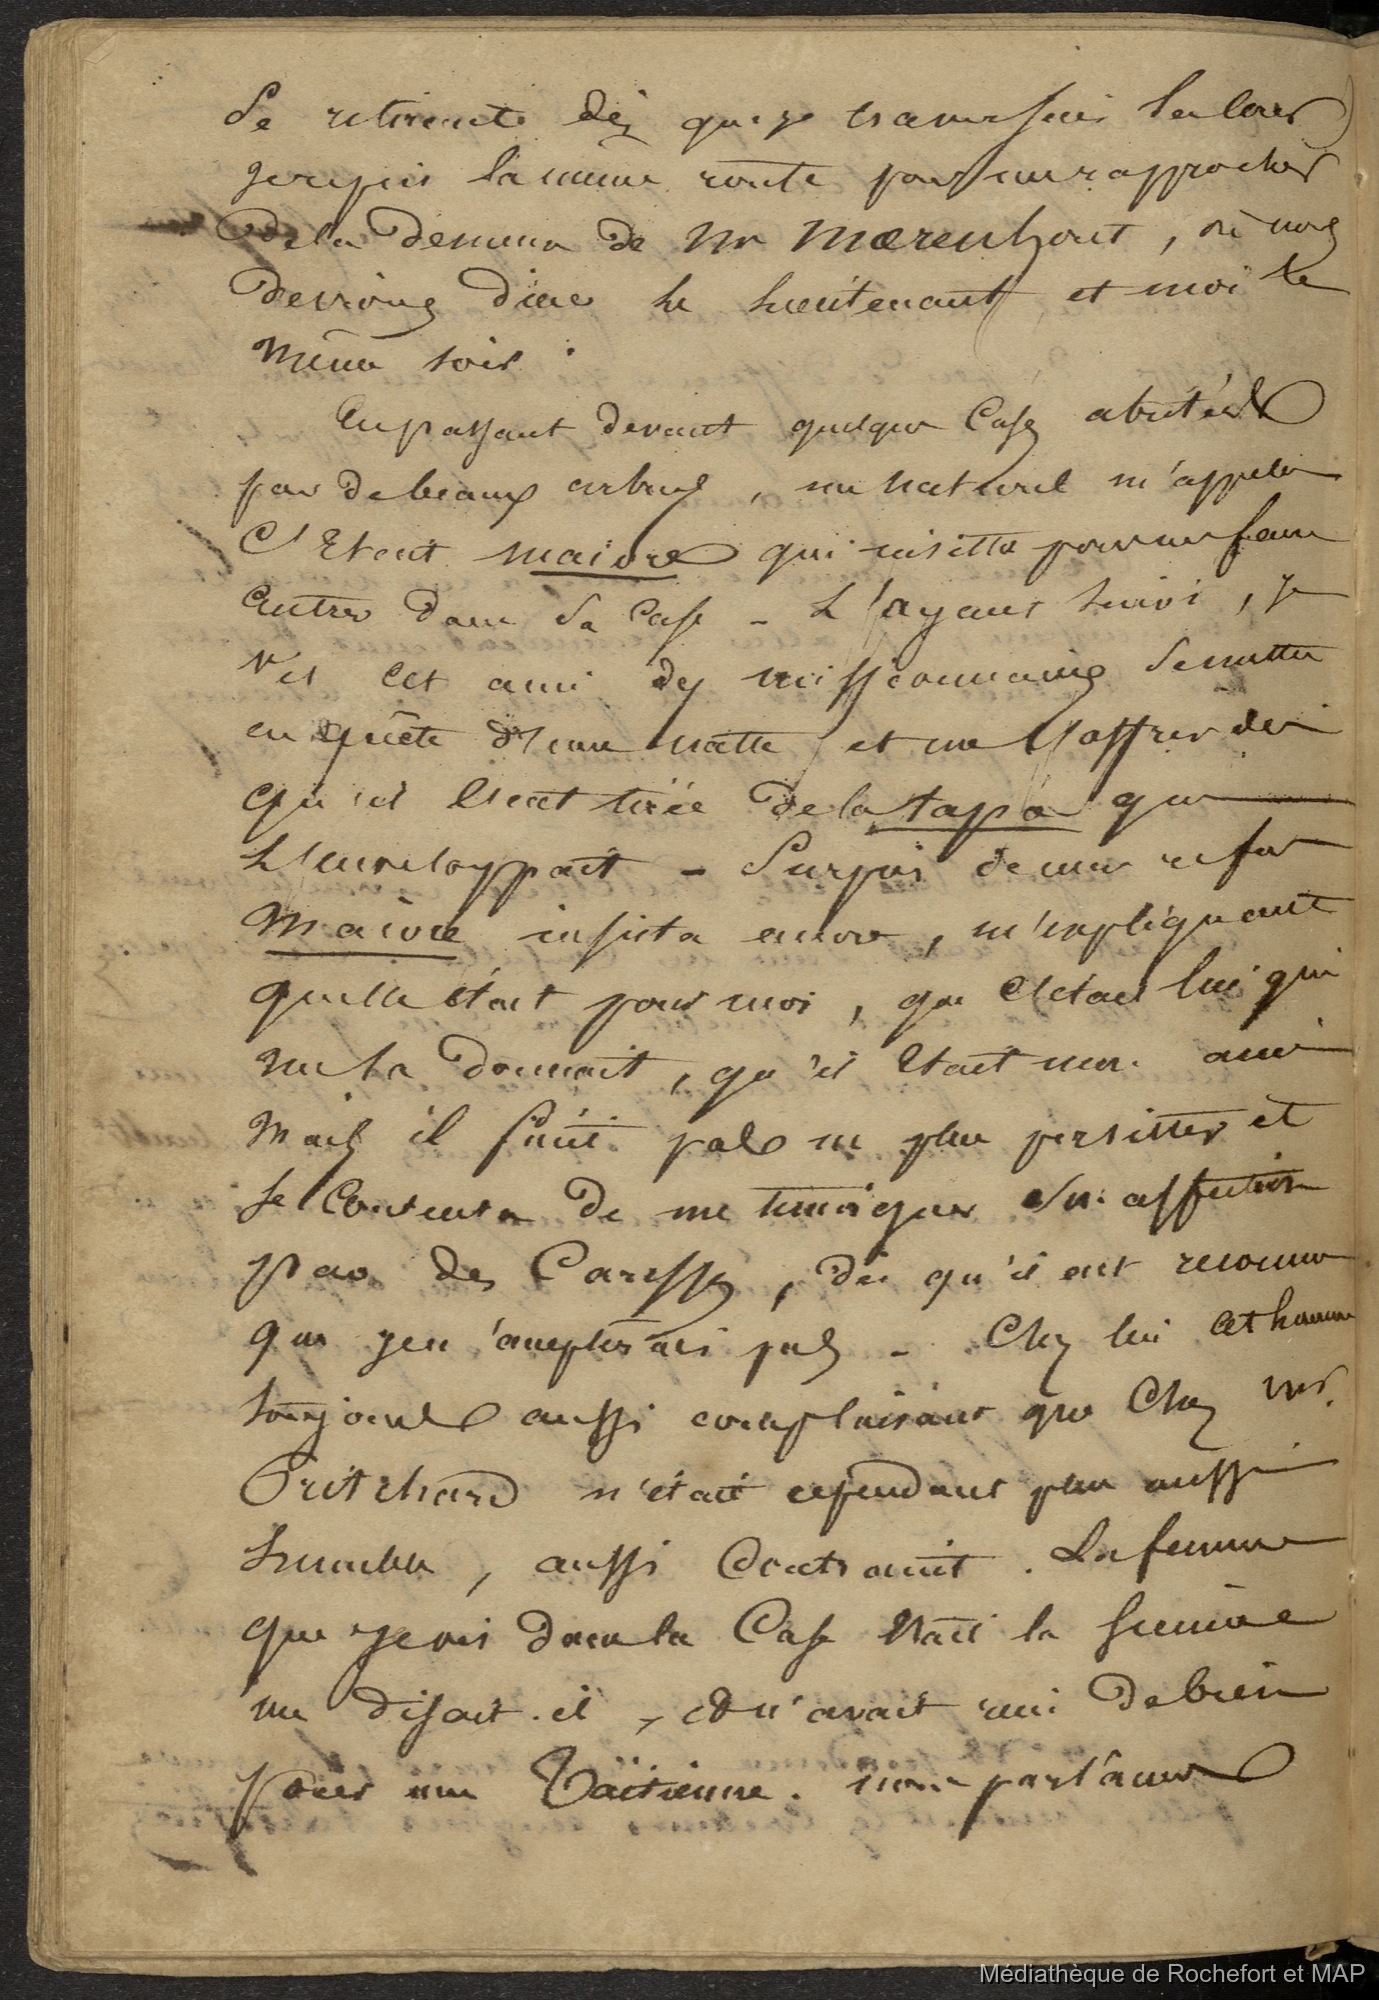 se retirent dès que je
je repris la même route pour me rapprocher
de la demeure de Mr Mœrenhout, où nous
devions diner le lieutenant et moi le
même soir.
En passant devant quelques cases abritées
par de beaux arbres, un naturel m'appela
C'etait maioré qui insista pour me faire
entrer dans sa case - L'ayant suivi, je
vis cet ami des missionnaires se mettre
en quête d'une natte et me l'offrir dès
qu'il l'eut tirée de la tapa qui
l'enveloppait - Surpris de mon refus
Maioré insista encore, m'expliquant
qu'elle était pour moi, que c'était lui qui
me la donnait, qu'il etait mon ami
Mais il finit par ne plus persister et
se contenta de me temoigner son affection
par des caresses, dès qu'il eut reconnu
que je n'accepterais pas - Chez lui cet homme
toujours aussi complaisant que chez Mr.
Pritchard n'était cependant plus aussi
humble, aussi contraint. La femme
que je vis dans la case était la sienne
me disait-il, et n'avait rien de bien
pour une Taïtienne. nous parlâmes